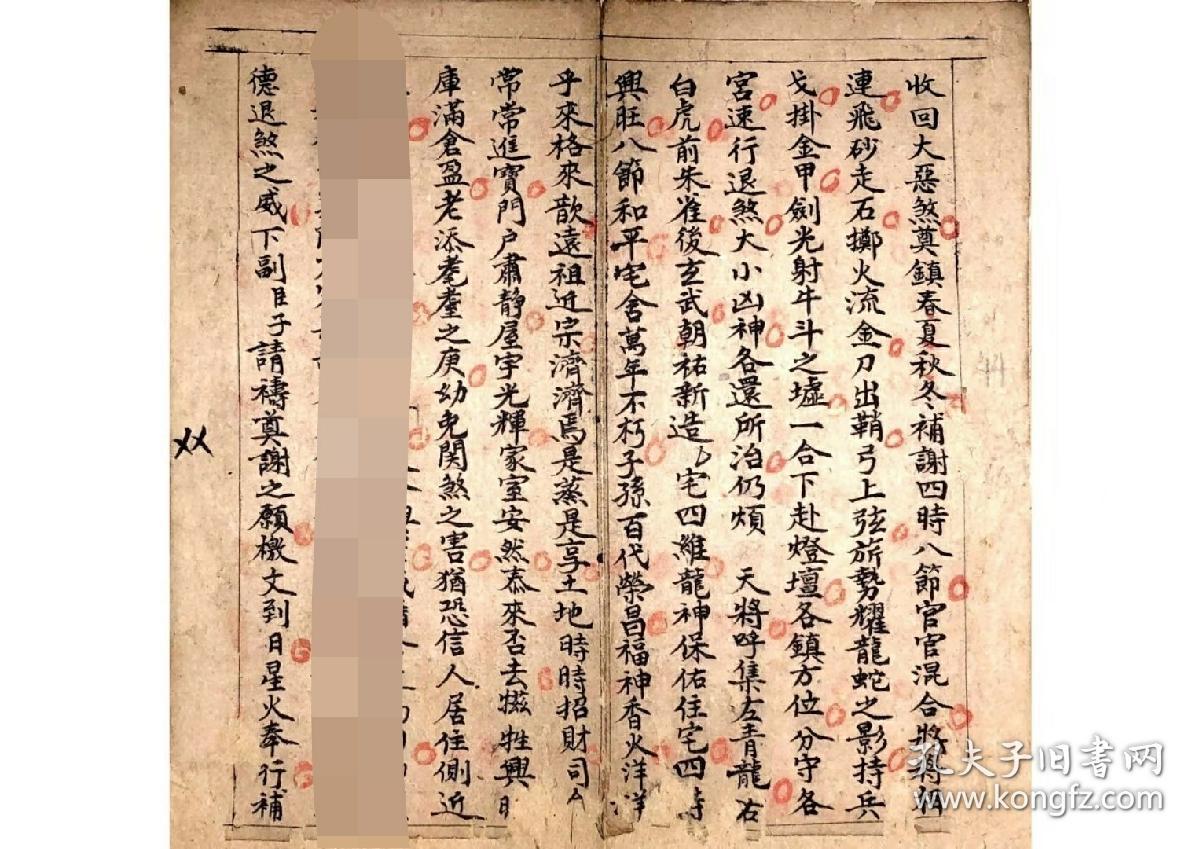 收回大惡煞奠鎮春夏秋冬補謝四時八節官官混合將將相
連飛砂走石擲火流金刀出鞘弓上弦旂勢耀龍蛇之影持兵
戈掛金甲劍光射牛斗之墟一合下赴燈壇各鎮方位分守各
宮速行退煞大小凶神各還所治仍煩 天將呼集左青龍右
白虎前朱雀後玄武朝祐新造宅四維龍神保佑住宅四時
興旺八節和平宅舍萬年不朽子孫百代榮昌福神香火洋洋
乎來格來歆遠祖近宗濟濟焉是蒸是享土地時時招財司命
常常進寶門户肅靜屋宇光輝家室安然泰來否去滋牲興旺
庫滿倉盈老添耄耋之庚幼免関煞之害猶恐信人居住側近
德退煞之威下副臣子請禱奠謝之願檄文到日星火奉行補
孔夫子旧書网
www.kongfz.com